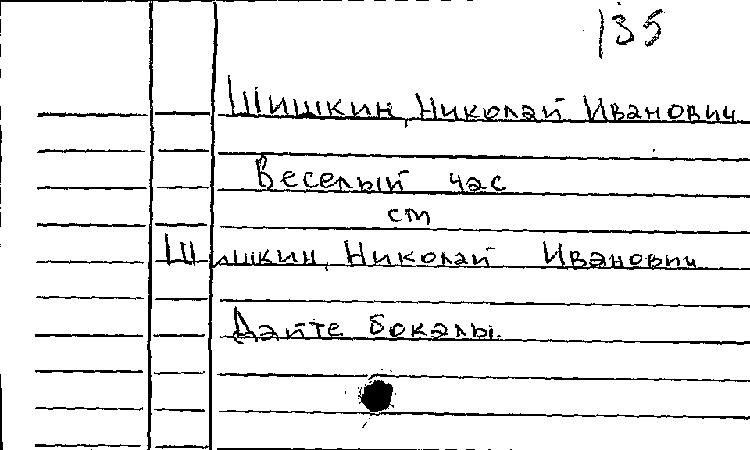 135
Шишкин, Николай Иванович
Веселый час
см
Шишкин, Николай Иванович
Дайте бокалы.